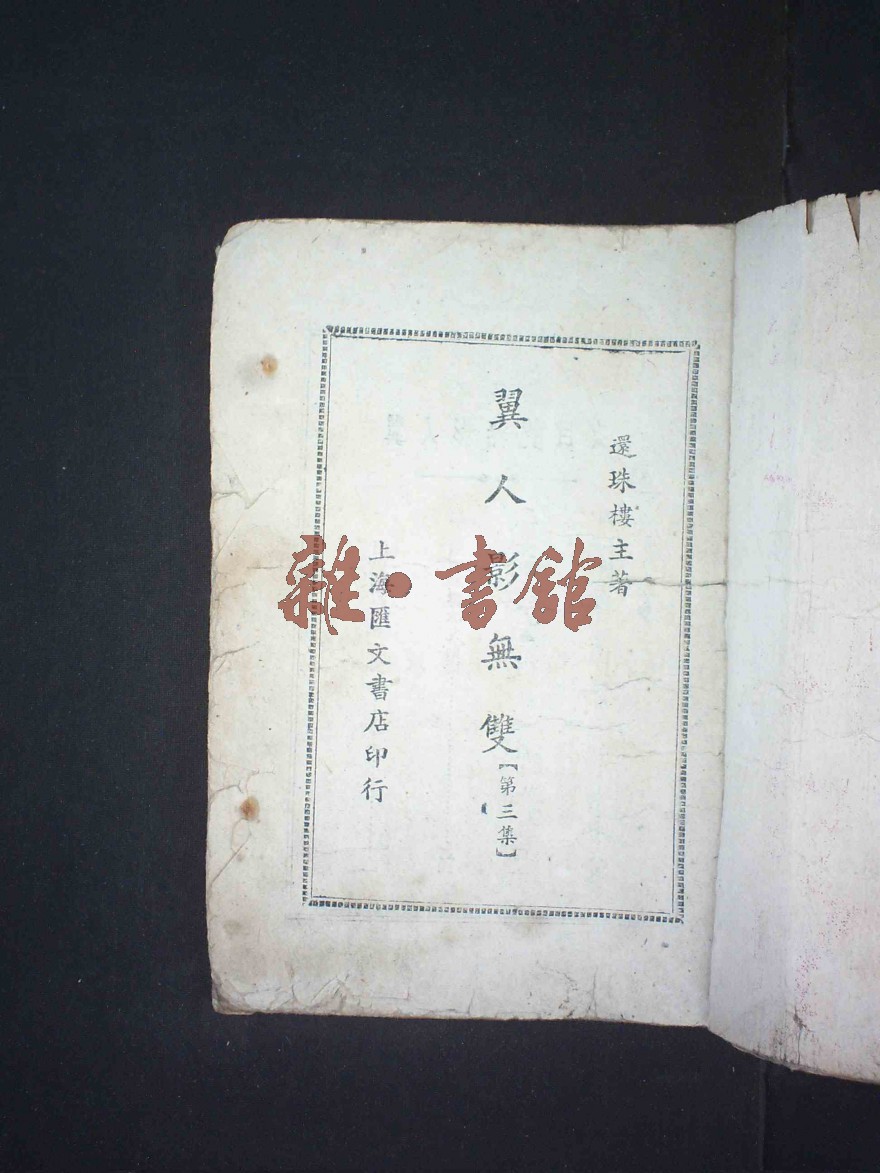 還珠樓主著
翼人影無雙【第三集】
上海匯文書店印行
雜·書館